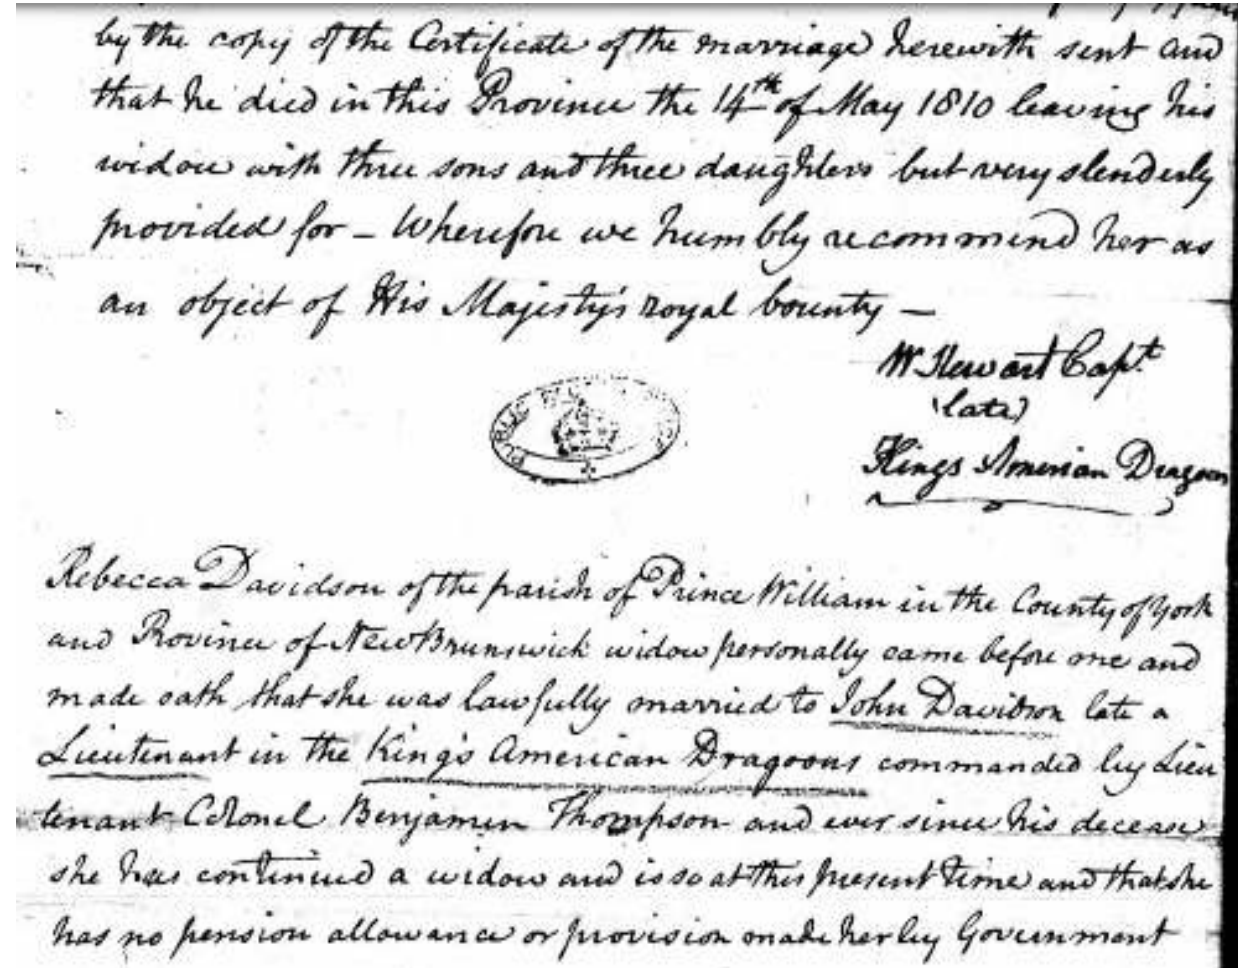 by the copy of the Certificate of the marriage herewith sent and
that he died in this Province the 14th of May 1810 leaving his
widow with three sons and three daughters but very slenderly
provided for – Wherefore we humbly recommend her as
an object of His Majesty's royal bounty –
W Stewart Capt
(late)
Kings American Dragoons
PUBLIC
Rebecca Davidson of the parish of Prince William in the County of York
and Province of New Brunswick widow personally came before me and
made oath that she was lawfully married to John Davidson late a
Lieutenant in the King's American Dragoons commanded by Lieu
tenant Colonel Benjamin Thompson and ever since his decease
she has continued a widow and is so at this present time and that she
has no pension allowance or provision made her by Government